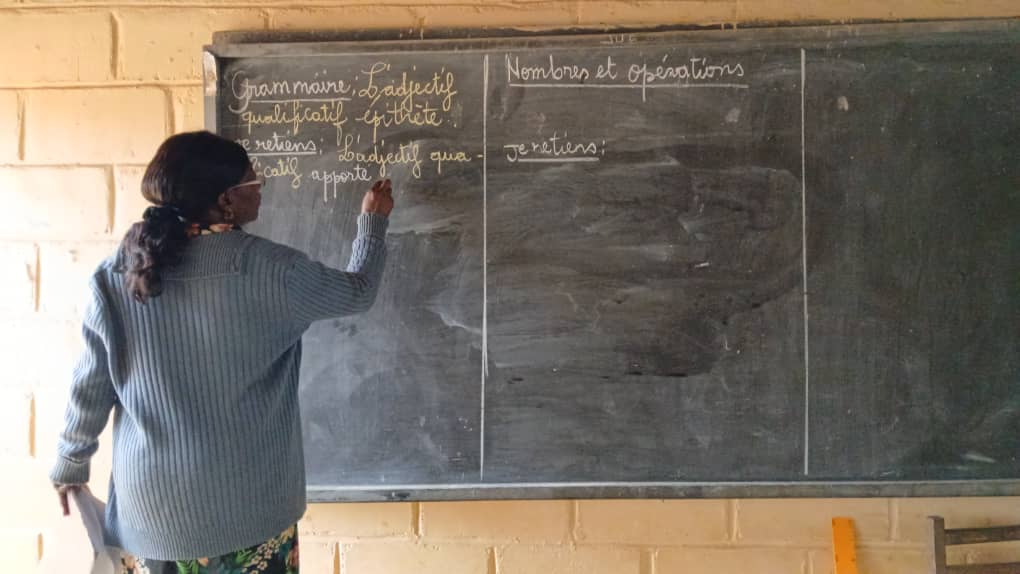 Grammaire : L'adjectif
qualificatif épithète.
retiens : L'adjectif qua-
catif apporte
Nombres et opérations
Je retiens :